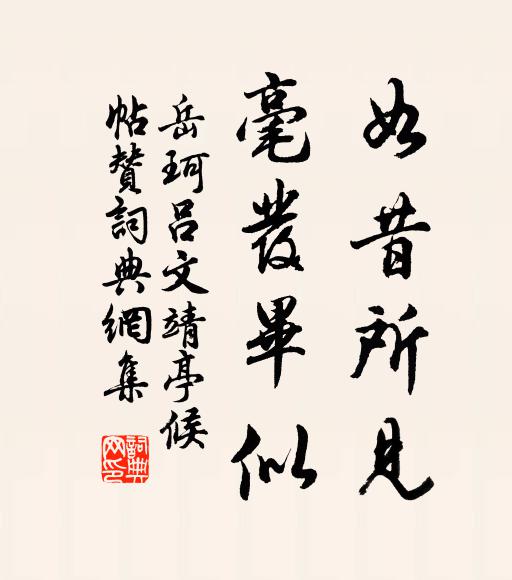 如昔所見
毫發畢似
岳珂吕文靖亭候
帖贊詞典網集
詞典網印